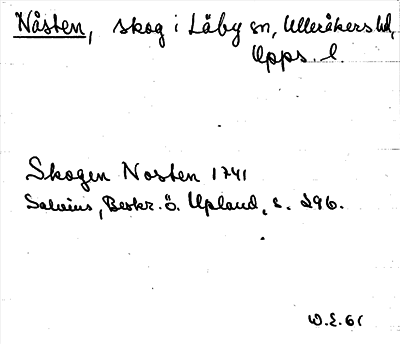 Nåsten, skog i Läby sn, Ulleråkers hd,
Upps. l.
Skogen Nosten 1741
Salvius, Beskr. ö. Upland, s. 296.
W.E. 61